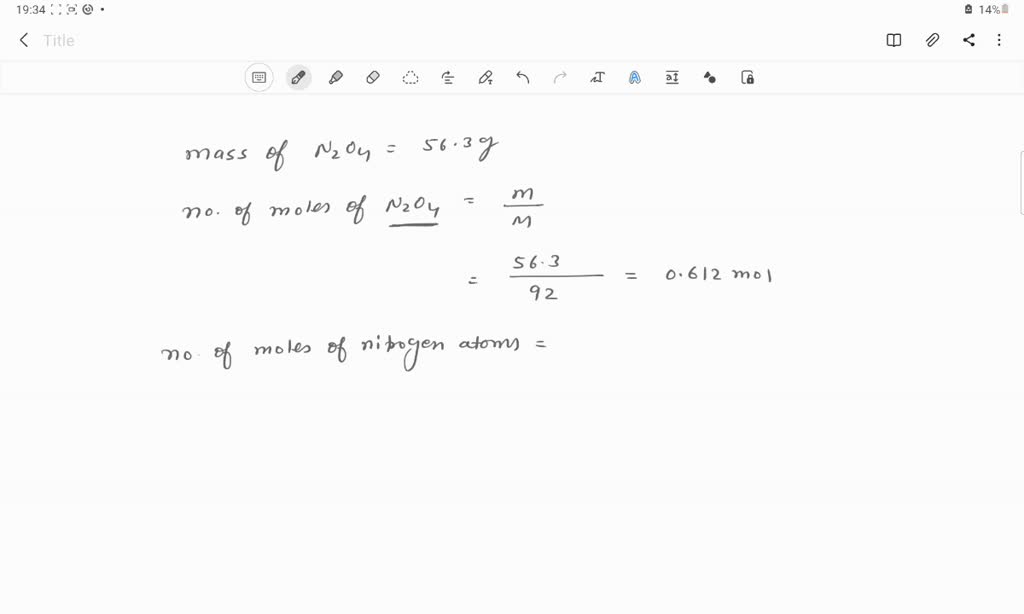 19:34
14%
Title
mass of N2O4 = 56.3g
no. of moles of N2O4 = m/M
= 56.3/92 = 0.612 mol
no. of moles of nitrogen atoms =